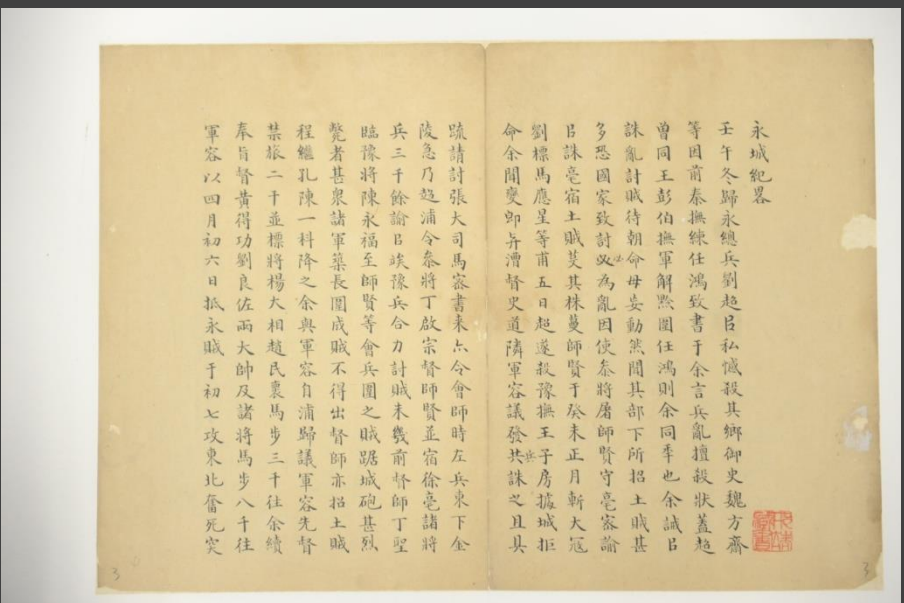 永城紀畧
壬午冬歸永總兵劉超㠯私憾殺其鄉御史魏方齋
等因前秦撫練任鴻致書于余言兵亂擅殺狀蓋超
曾同王彭伯撫軍解㸃圍任鴻則余同季也余誡㠯
誅亂討賊待朝命毋妄動然聞其部下所招土賊甚
多恐國家致討必為亂因使叅將屠師賢守亳密諭
㠯誅亳宿土賊芟其株蔓師賢于癸未正月斬大冦
劉標馬應呈等甫五日超遂殺豫撫王子房據城拒
命余聞變卽弁漕督史道隣軍容議發兵共誅之且具
疏請討張大司馬密書来亦令會師時左兵東下金
陵急乃趋浦令叅將丁啟宗督師賢並宿徐亳諸將
兵三千餘諭㠯竢豫兵合力討賊未幾前督師丁聖
臨豫將陳永福至師賢等會兵圍之賊踞城砲甚烈
斃者甚衆諸軍築長圍成賊不得出督師亦招土賊
程繼孔陳一科降之余與軍容自浦歸議軍容先督
禁旅二千並標將楊大相趙民褱馬步三千往余續
奉㫖督黄得功劉良佐兩大帥及諸將馬步八千往
軍容以四月初六日抵永賊于初七攻東北奮死突
3
3